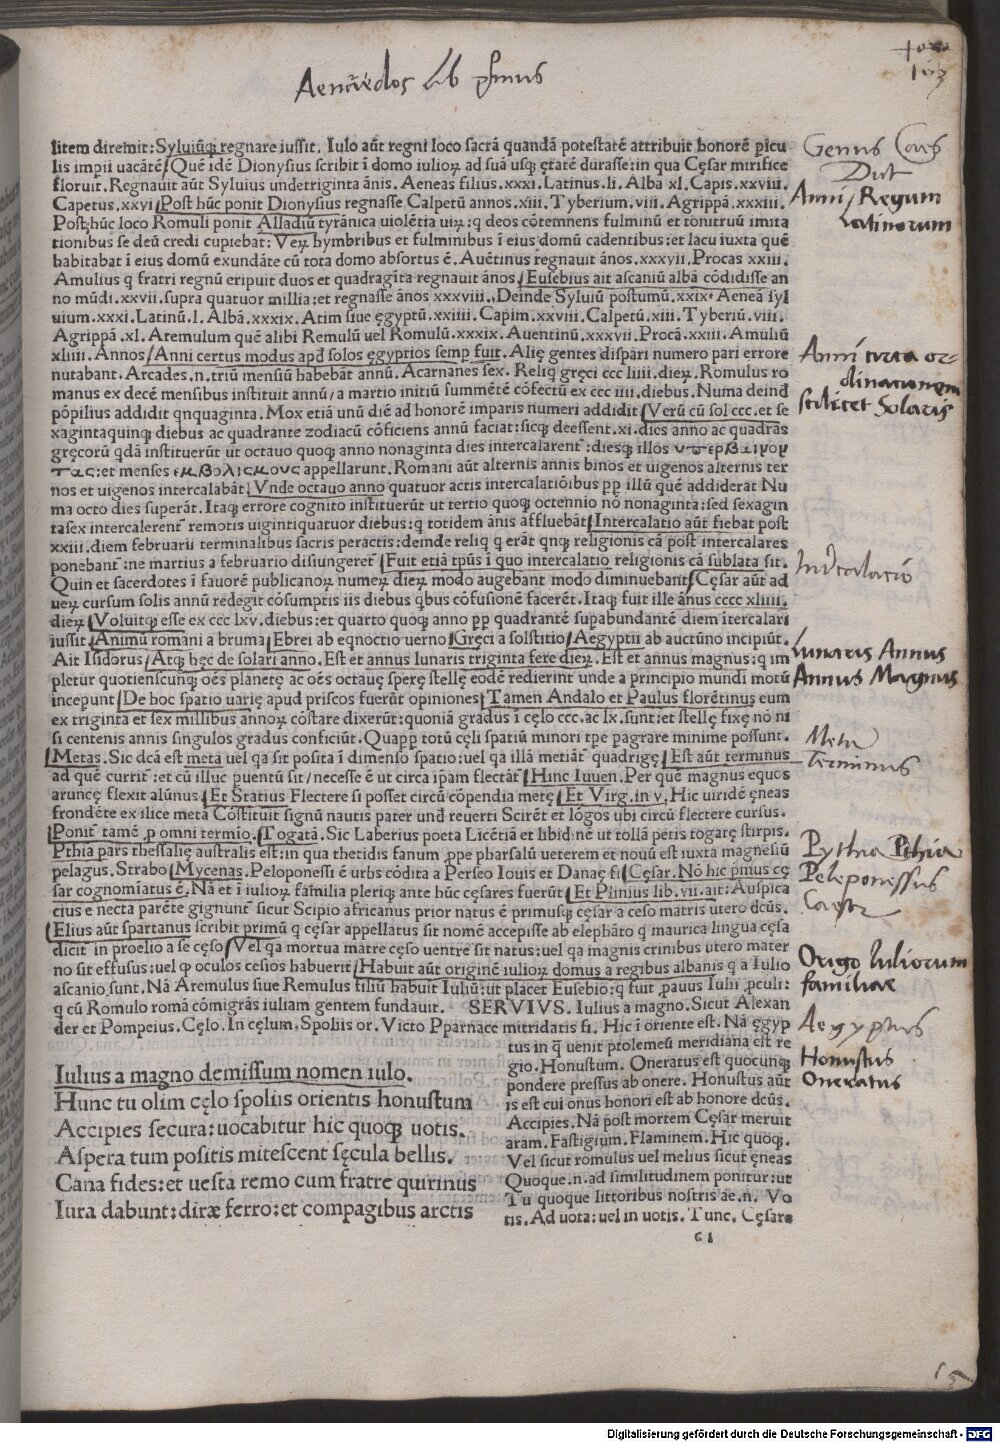 Aeneidos Lib primus
litem diremit: Syluiūq; regnare iussit. Iulo aūt regni loco sacrā quandā potestatē attribuit honorē p̄icu
lis impii uacātē/Quē idē Dionysius scribit ī domo iulioꝝ ad suā usq; ętatē durasse: in qua Cęsar mirifice
floruit. Regnauit aūt Syluius undetriginta ānis. Aeneas filius .xxxi. Latinus .li. Alba xl. Capis .xxviii.
Capetus .xxvi/Post hūc ponit Dionysius regnasse Calpetū annos .xiii. Tyberium .viii. Agrippā .xxxiii.
Post hūc loco Romuli ponit Alladiū tyrānica uiolētia uiꝝ: q deos cōtemnens fulminū et tonitruū imita
tionibus se deū credi cupiebat: Veꝝ hymbribus et fulminibus ī eius domū cadentibus: et lacu iuxta quē
habitabat ī eius domū exundāte cū tota domo absortus ē. Auētinus regnauit ānos .xxxvii. Procas xxiii.
Amulius q fratri regnū eripuit duos et quadragīta regnauit ānos/Eusebius ait ascaniū albā cōdidisse an
no mūdi .xxvii. supra quatuor millia: et regnasse ānos xxxviii. Deinde Syluiū postumū .xxix. Aeneā syl
uium .xxxi. Latinū .l. Albā .xxxix. Atim siue egyptū .xxiiii. Capim .xxviii. Calpetū .xiii. Tyberiū .viii.
Agrippā .xl. Aremulum quē alibi Remulū uel Romulū .xxxix. Auentinū .xxxvii. Procā .xxiii. Amuliū
xliiii. Annos/Anni certus modus apd solos egyptios semp fuit. Alię gentes dispari numero pari errore
nutabant. Arcades .n. triū mensiū habebāt annū. Acarnanes sex. Reliq gręci ccc liiii. dieꝝ. Romulus ro
manus ex decē mensibus instituit annū/a martio initiū summētē cōfectū ex ccc iiii. diebus. Numa deind
pōpilius addidit qnquaginta. Mox etiā unū diē ad honorē imparis numeri addidit/Verū cū sol ccc. et se
xagintaquinq; diebus ac quadrante zodiacū cōficiens annū faciat: sicq; deessent .xi. dies anno ac quadrās
gręcorū qdā instituerūt ut octauo quoq; anno nonaginta dies intercalarent: diesq; illos υπερβαινον
τας: et menses εμβολισμους appellarunt. Romani aūt alternis annis binos et uigenos alternis ter
nos et uigenos intercalabāt/Vnde octauo anno quatuor actis intercalatiōibus pp illū quē addiderat Nu
ma octo dies superāt. Itaq; errore cognito instituerūt ut tertio quoq; octennio nō nonaginta: sed sexagin
tasex intercalerent remotis uigintiquatuor diebus: q totidem ānis affluebāt/Intercalatio aūt fiebat post
xxiii. diem februarii terminalibus sacris peractis: deinde reliq q erāt qnq; religionis cā post intercalares
ponebant: ne martius a februario disiungeret/Fuit etiā tpūs ī quo intercalatio religionis cā sublata sit.
Quin et sacerdotes ī fauorē publicanoꝝ numeꝝ dieꝝ modo augebant modo diminuebant/Cęsar aūt ad
ueꝝ cursum solis annū redegit cōsumptis iis diebus qbus cōfusionē facerēt. Itaq; fuit ille ānus cccc xliii.
dieꝝ/Voluitq; esse ex ccc lxv. diebus: et quarto quoq; anno pp quadrantē supabundantē diem ītercalari
iussit/Animū romani a bruma/Ebrei ab eqnoctio uerno/Gręci a solstitio/Aegyptii ab auctūno incipiūt.
Ait Isidorus/Atq; hęc de solari anno. Est et annus lunaris triginta fere dieꝝ. Est et annus magnus: q im
pletur quotienscunq; oēs planetę ac oēs octauę sperę stellę eodē redierint unde a principio mundi motū
incepunt/De hoc spatio uarię apud priscos fuerūt opiniones/Tamen Andalo et Paulus florētinus eum
ex triginta et sex millibus annoꝝ cōstare dixerūt: quoniā gradus ī cęlo ccc. ac lx. sunt: et stellę fixę nō ni
si centenis annis singulos gradus conficiūt. Quapp totū cęli spatiū minori tpe pagrare minime possunt.
Metas. Sic dcā est meta uel qa sit posita ī dimenso spatio: uel qa illā metiāt quadrigę/Est aūt terminus
ad quē currit: et cū illuc puentū sit/necesse ē ut circa ipam flectāt/Hinc Iuuen. Per quē magnus equos
aruncę flexit alūnus/Et Statius Flectere si posset circū cōpendia metę/Et Virg. in v. Hic uiridē ęneas
frondēte ex ilice meta Cōstituit signū nautis pater und reuerti Scirēt et lōgos ubi circū flectere cursus.
Ponit tamē p omni termio. Togatā. Sic Laberius poeta Licētiā et libidinē ut tollā petis togatę stirpis.
Pthia pars thessalię australis est: in qua thetidis fanum ppe pharsalū ueterem et nouū est iuxta magnesiū
pelagus. Strabo/Mycenas. Peloponessi ē urbs cōdita a Perseo Iouis et Danaę fi/Cęsar. Nō hic pmus cę
sar cognomiatus ē. Nā et ī iulioꝝ fāmilia pleriq; ante hūc cęsares fuerūt/Et Plinius lib. vii. ait: Auspica
cius e necta parēte gignunt sicut Scipio africanus prior natus ē primusq; cęsar a ceso matris utero dcūs.
Elius aūt spartanus scribit primū q cęsar appellatus sit nomē accepisse ab elephāto q maurica lingua cęsa
dicit in proelio a se cęso/Vel qa mortua matre cęso uentre sit natus: uel qa magnis crinibus utero mater
no sit effusus: uel q oculos cesios habuerit/Habuit aūt originē iulioꝝ domus a regibus albanis q a Iulio
ascanio sunt. Nā Aremulus siue Remulus filiū habuit Iuliū: ut placet Eusebio: q fuit pauus Iulii pculi:
q cū Romulo romā cōmigrās iuliam gentem fundauit. SERVIVS. Iulius a magno. Sicut Alexan
der et Pompeius. Cęlo. In cęlum. Spoliis or. Victo Pparnace mitridatis fi. Hic ī oriente est. Nā ęgyp
tus in q̄ uenit ptolemęi meridiana est re
gio. Honustum. Oneratus est quocunq;
pondere pressus ab onere. Honustus aūt
is est cui onus honori est ab honore dcūs.
Accipies. Nā post mortem Cęsar meruit
aram. Fastigium. Flaminem. Hic quoq;.
Vel sicut romulus uel melius sicut ęneas
Quoque .n. ad similitudinem ponitur: ut
Tu quoque littoribus nostris ae. n. Vo
tis. Ad uota: uel in uotis. Tunc. Cęsare
Iulius a magno demissum nomen iulo.
Hunc tu olim cęlo spoliis orientis honustum
Accipies secura: uocabitur hic quoq; uotis.
Aspera tum positis mitescent sęcula bellis.
Cana fides: et uesta remo cum fratre quirinus
Iura dabunt: diræ ferro: et compagibus arctis
G i
Genus
Anni Regum
Latinorum
Anni certa or-
dinationem
scilicet Solaris
Intercalacio
Lunaris Annus
Annus Magnus
Meta
Terminus
Pythia Pthia
Peleponessus
Caesar
Origo Iuliorum
familiae
Aegyptus
Honustus
Oneratus
Digitalisierung gefördert durch die Deutsche Forschungsgemeinschaft - DFG